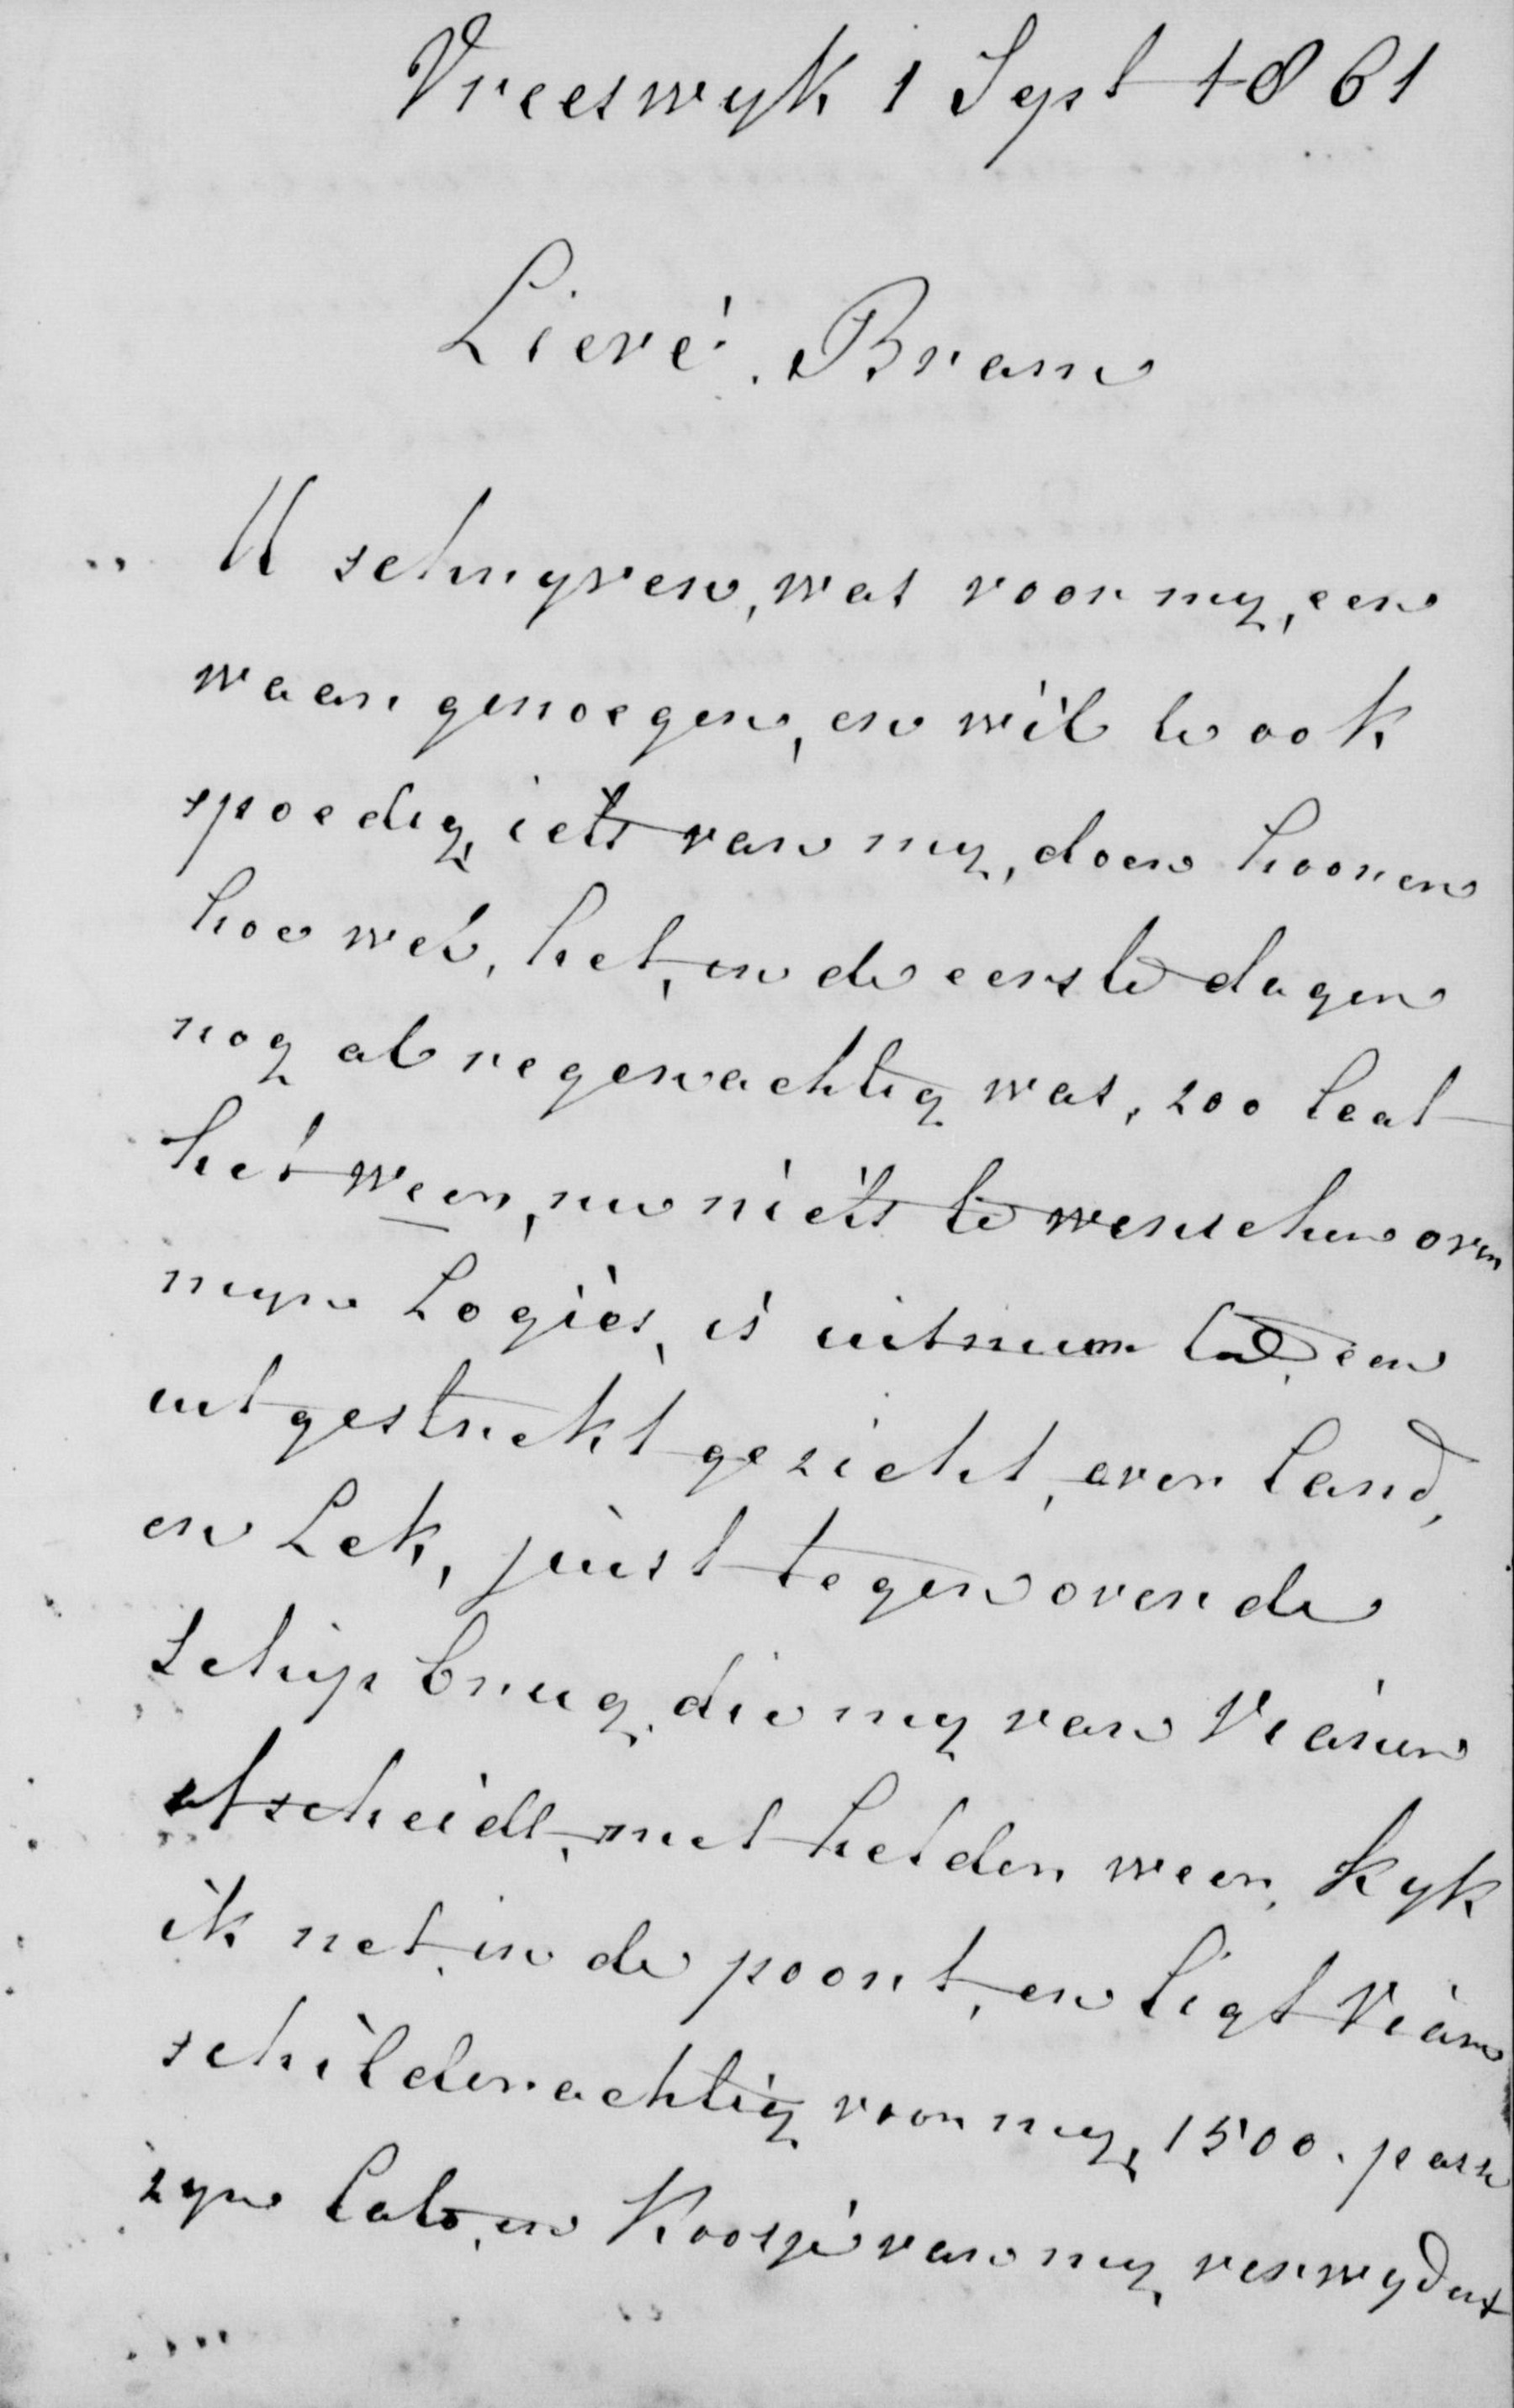 Vreeswyk 1 Sept 1861
Lieve Bram
U schryven, was voor my, een
waar genoegen, en wil U ook
spoedig, iets van my, doen hooren
hoe wel, het, in de eerste dagen
nog al regenachtig was, zoo laat
het weer, nu niets te wenschen over
myn Logies, is uitmuntend, een
uitgestrekt gezicht, over land,
en Lek, juist tegen over de
schip brug, die my van Vianen
afscheidt, met helder weer, kyk
ik net, in de poort, en ligt Vianen
schilderachtig voor my, 1500. passen
zyn Cato, en Koosje van my verwydert